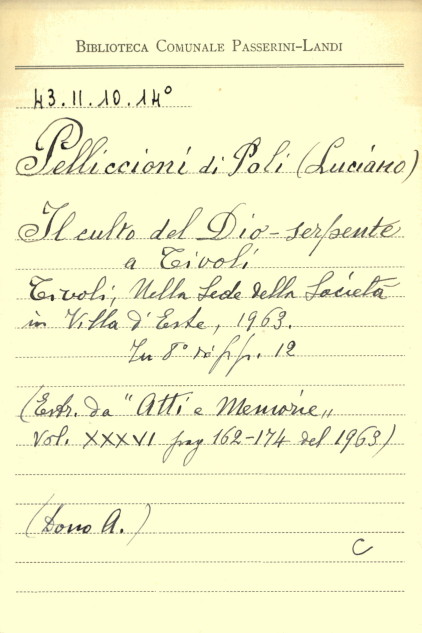 BIBLIOTECA COMUNALE PASSERINI-LANDI
43.II.10.14°
Pelliccioni di Poli (Luciano)
Il culto del Dio-serpente
a Tivoli
Tivoli, Nella Sede della Società
in Villa d'Este, 1963.
In 8° pp. 12
(Estr. da "Atti e Memorie"
Vol. XXXVI pag 162-174 del 1963)
(Dono A.)
C